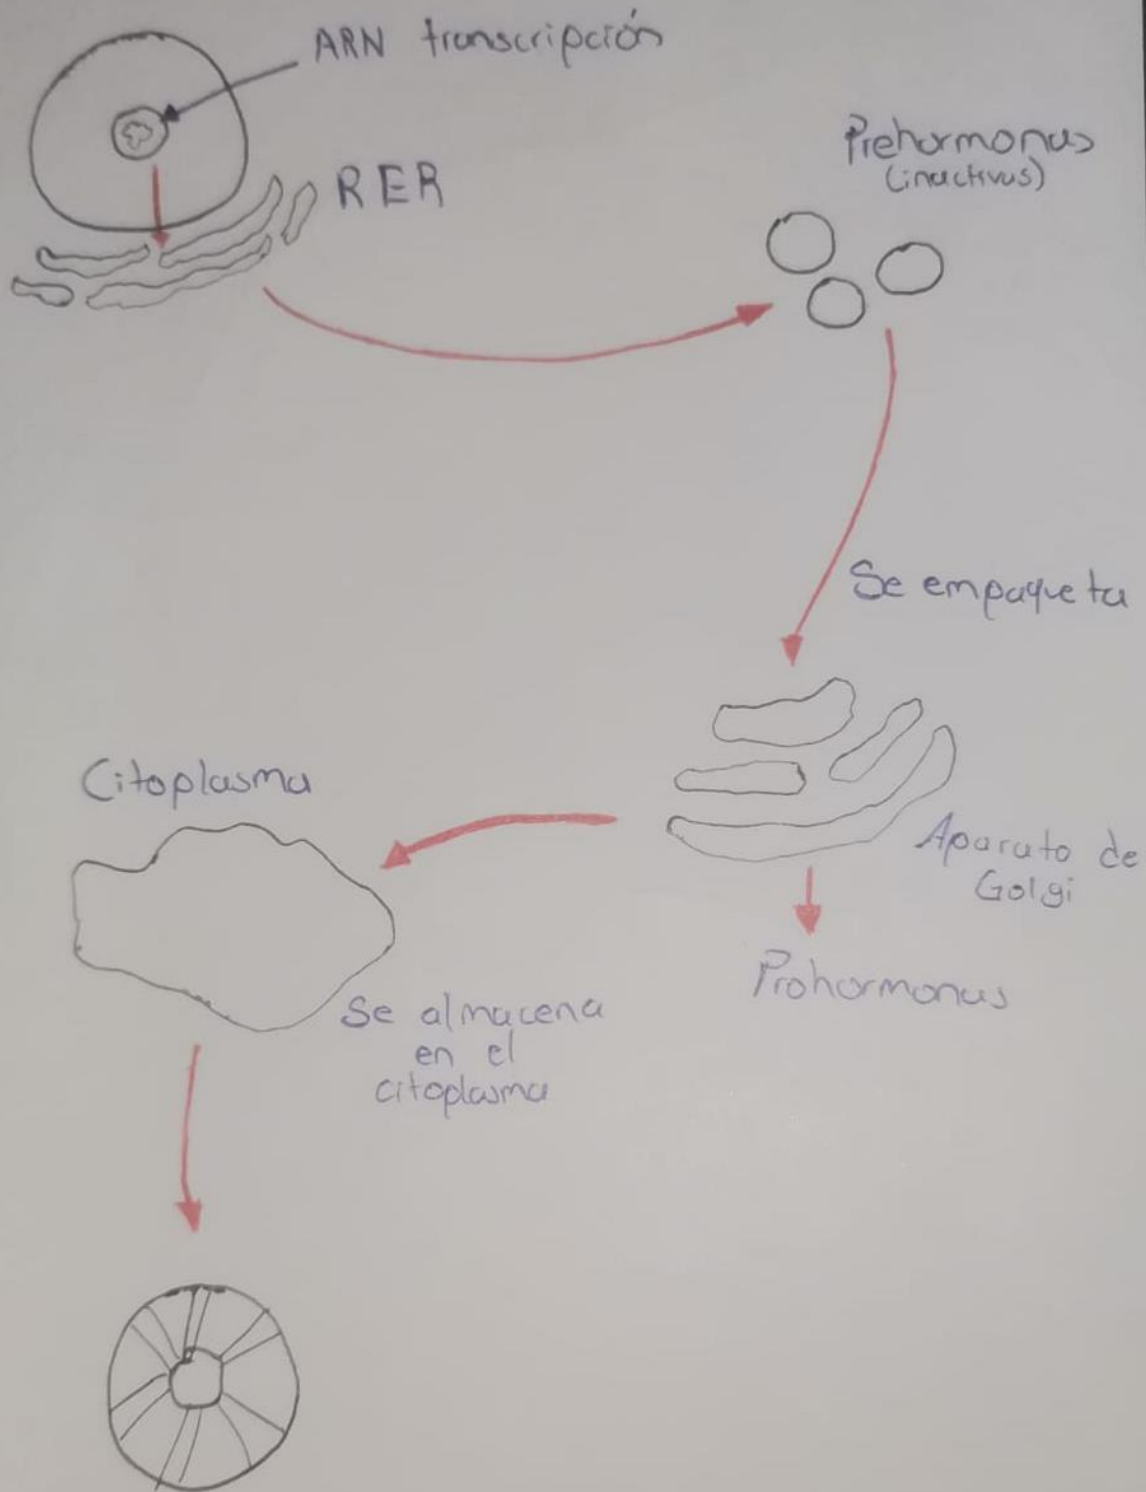 ARN transcripción
RER
Prehormonas
(inactivas)
Se empaqueta
Aparato de
Golgi
Prohormonas
Citoplasma
Se almacena
en el
citoplasma